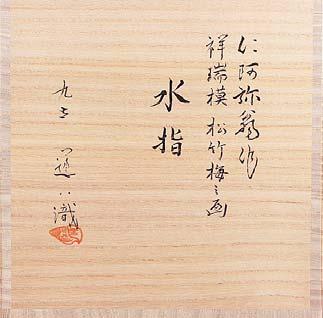 仁阿弥翁作
祥瑞模松竹梅之画
水指
九十 道八識